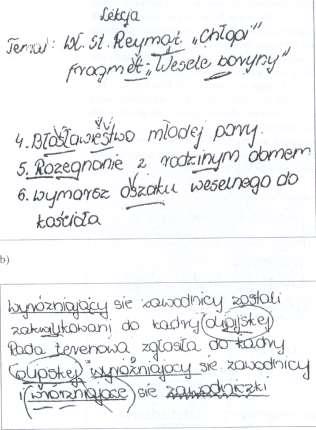 Lekcja
Temat: Wł. St. Reymąt „Chłopi"
fragmęt: „Wesele boryny"
4. Błosławiestwo młodej pary.
5. Rozegnanie z rodzinym obmem
6. wymarsz oszaku weselnego do
kościoła
b)
wyrózniający sie zawodnicy zostali
zakwalykowani do kadry olipijskej
Pada terenowa zgłosła do kadry
olipskej wyrożniający sie zawodnicy
i wrorzniające sie zawodniczki